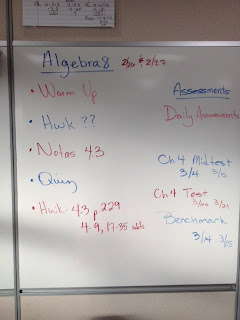 Algebra 8 2/26 & 2/27
• Warm Up
• Hwk ??
• Notes 4.3
• Quiz
• Hwk. 4.3 p. 229
4-9, 17-35 odds
Assessments
Daily Assessments
Ch 4 Midtest
3/4 3/5
Ch 4 Test
Benchmark
3/14 3/15